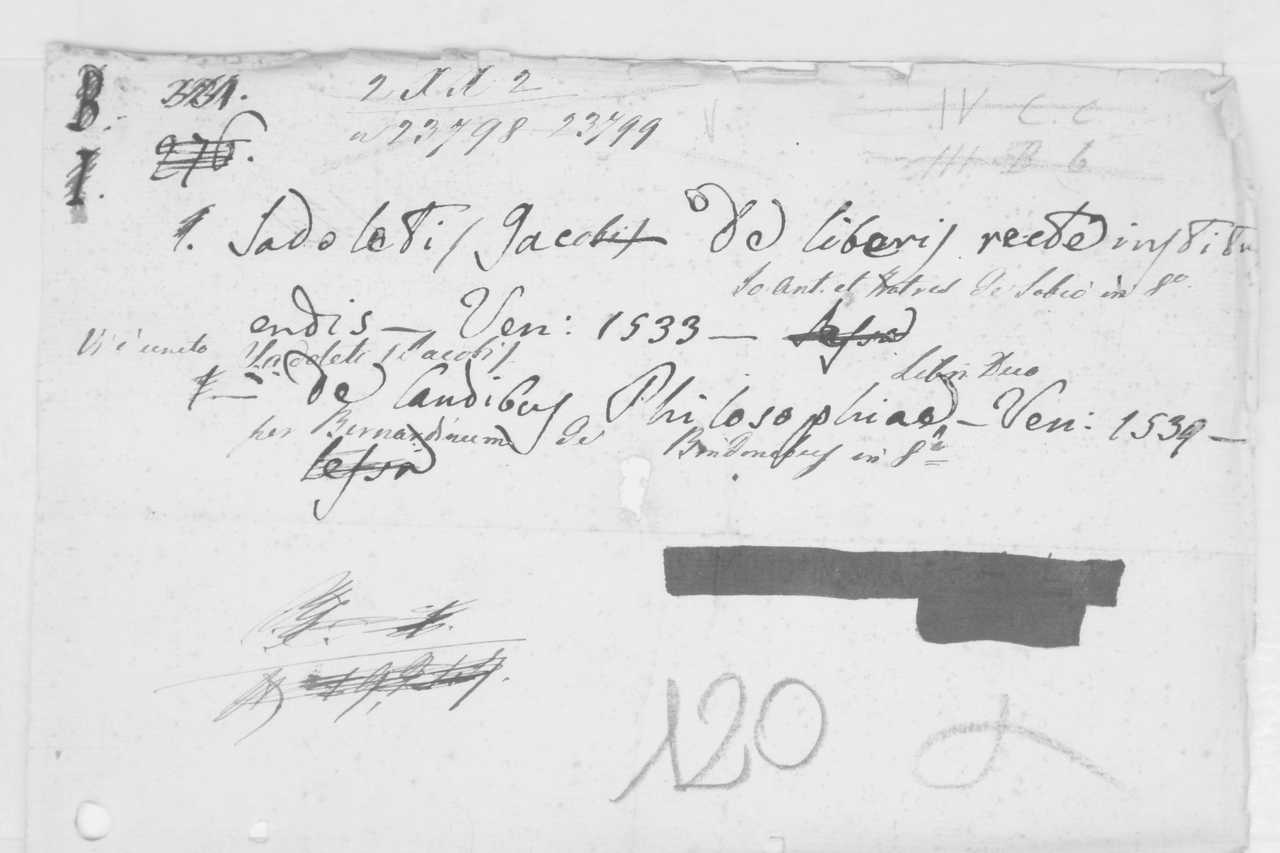 B. 321. 2 X X 2 IV C. C
276. n 23798 23799 V III B 6
I.
1. Sadoletis Jacobis De liberis recte institu
Io Ant. et Fratres de Sabio in 8o.
endis — Ven: 1533 —
Vi è unito Sadoleti Jacobis Libri Duo
De Laudibus Philosophiae — Ven: 1539 —
per Bernardinum de Bindonibus in 8o
120